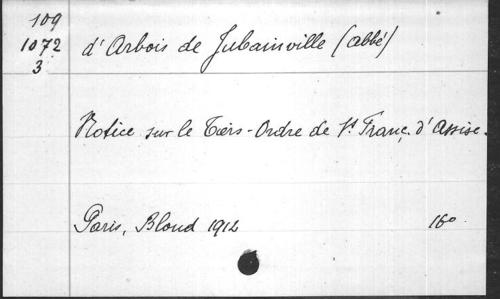 109
1072
3
d'Arbois de Jubainville (abbé)
Notice sur le Tiers-Ordre de St Franç. d'Assise.
Paris, Bloud 1912 16°